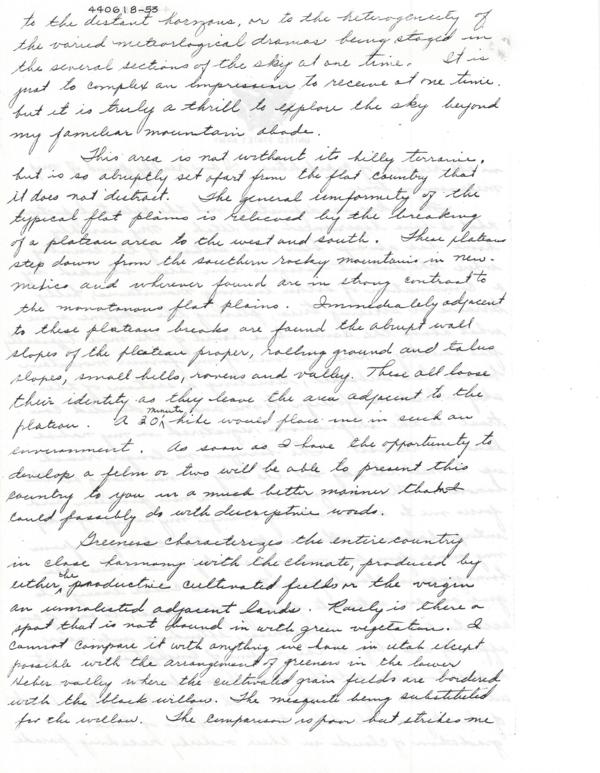 440618-53
to the distant horizons, or to the heterogeneity of
the varied meteorlogical dramas being staged in
the several sections of the sky at one time. It is
just to complex an impression to receive at one time.
but it is truly a thrill to explore the sky beyond
my familiar mountain abode.
This area is not without its hilly terraine,
but is so abruptly set apart from the flat country that
it does not detract. The general uniformity of the
typical flat plains is relieved by the breaking
of a plateau area to the west and south. These plateaus
step down from the southern rocky mountains in new-
mexico and wherever found are in strong contrast to
the monotonous flat plains. Immediately adjacent
to these plateaus breaks are found the abrupt wall
slopes of the plateau proper, rolling ground and talus
slopes, small hills, ravens and valley. These all loose
their identity as they leave the area adjacent to the
plateau. A 30 minute hike would place me in such an
environment. As soon as I have the opportunity to
develop a felm or two will be able to present this
country to you in a much better manner that I
could possibly do with descriptive words.
Greeness characterizes the entire country
in close harmony with the climate, produced by
either the productive cultivated fields or the virgin
an unmolested adjacent lands. Rarely is there a
spot that is not bound in with green vegetation. I
cannot compare it with anything we have in utah except
possible with the arrangement of greenes in the lower
Heber valley where the cultivated grain fields are bordered
with the black willow. The mesquite being substituted
for the willow. The comparison is poor but strikes me